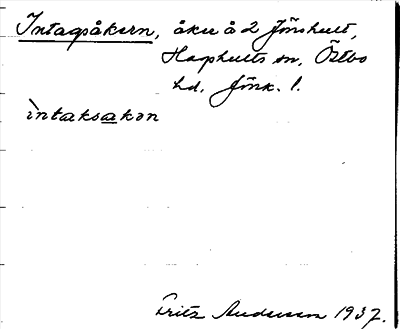 Intagsåkern, åker å 2 Jönshult,
Hagshults sn, Östbo
hd. Jönk. l.
intaksakən
Fritz Andersson 1937.